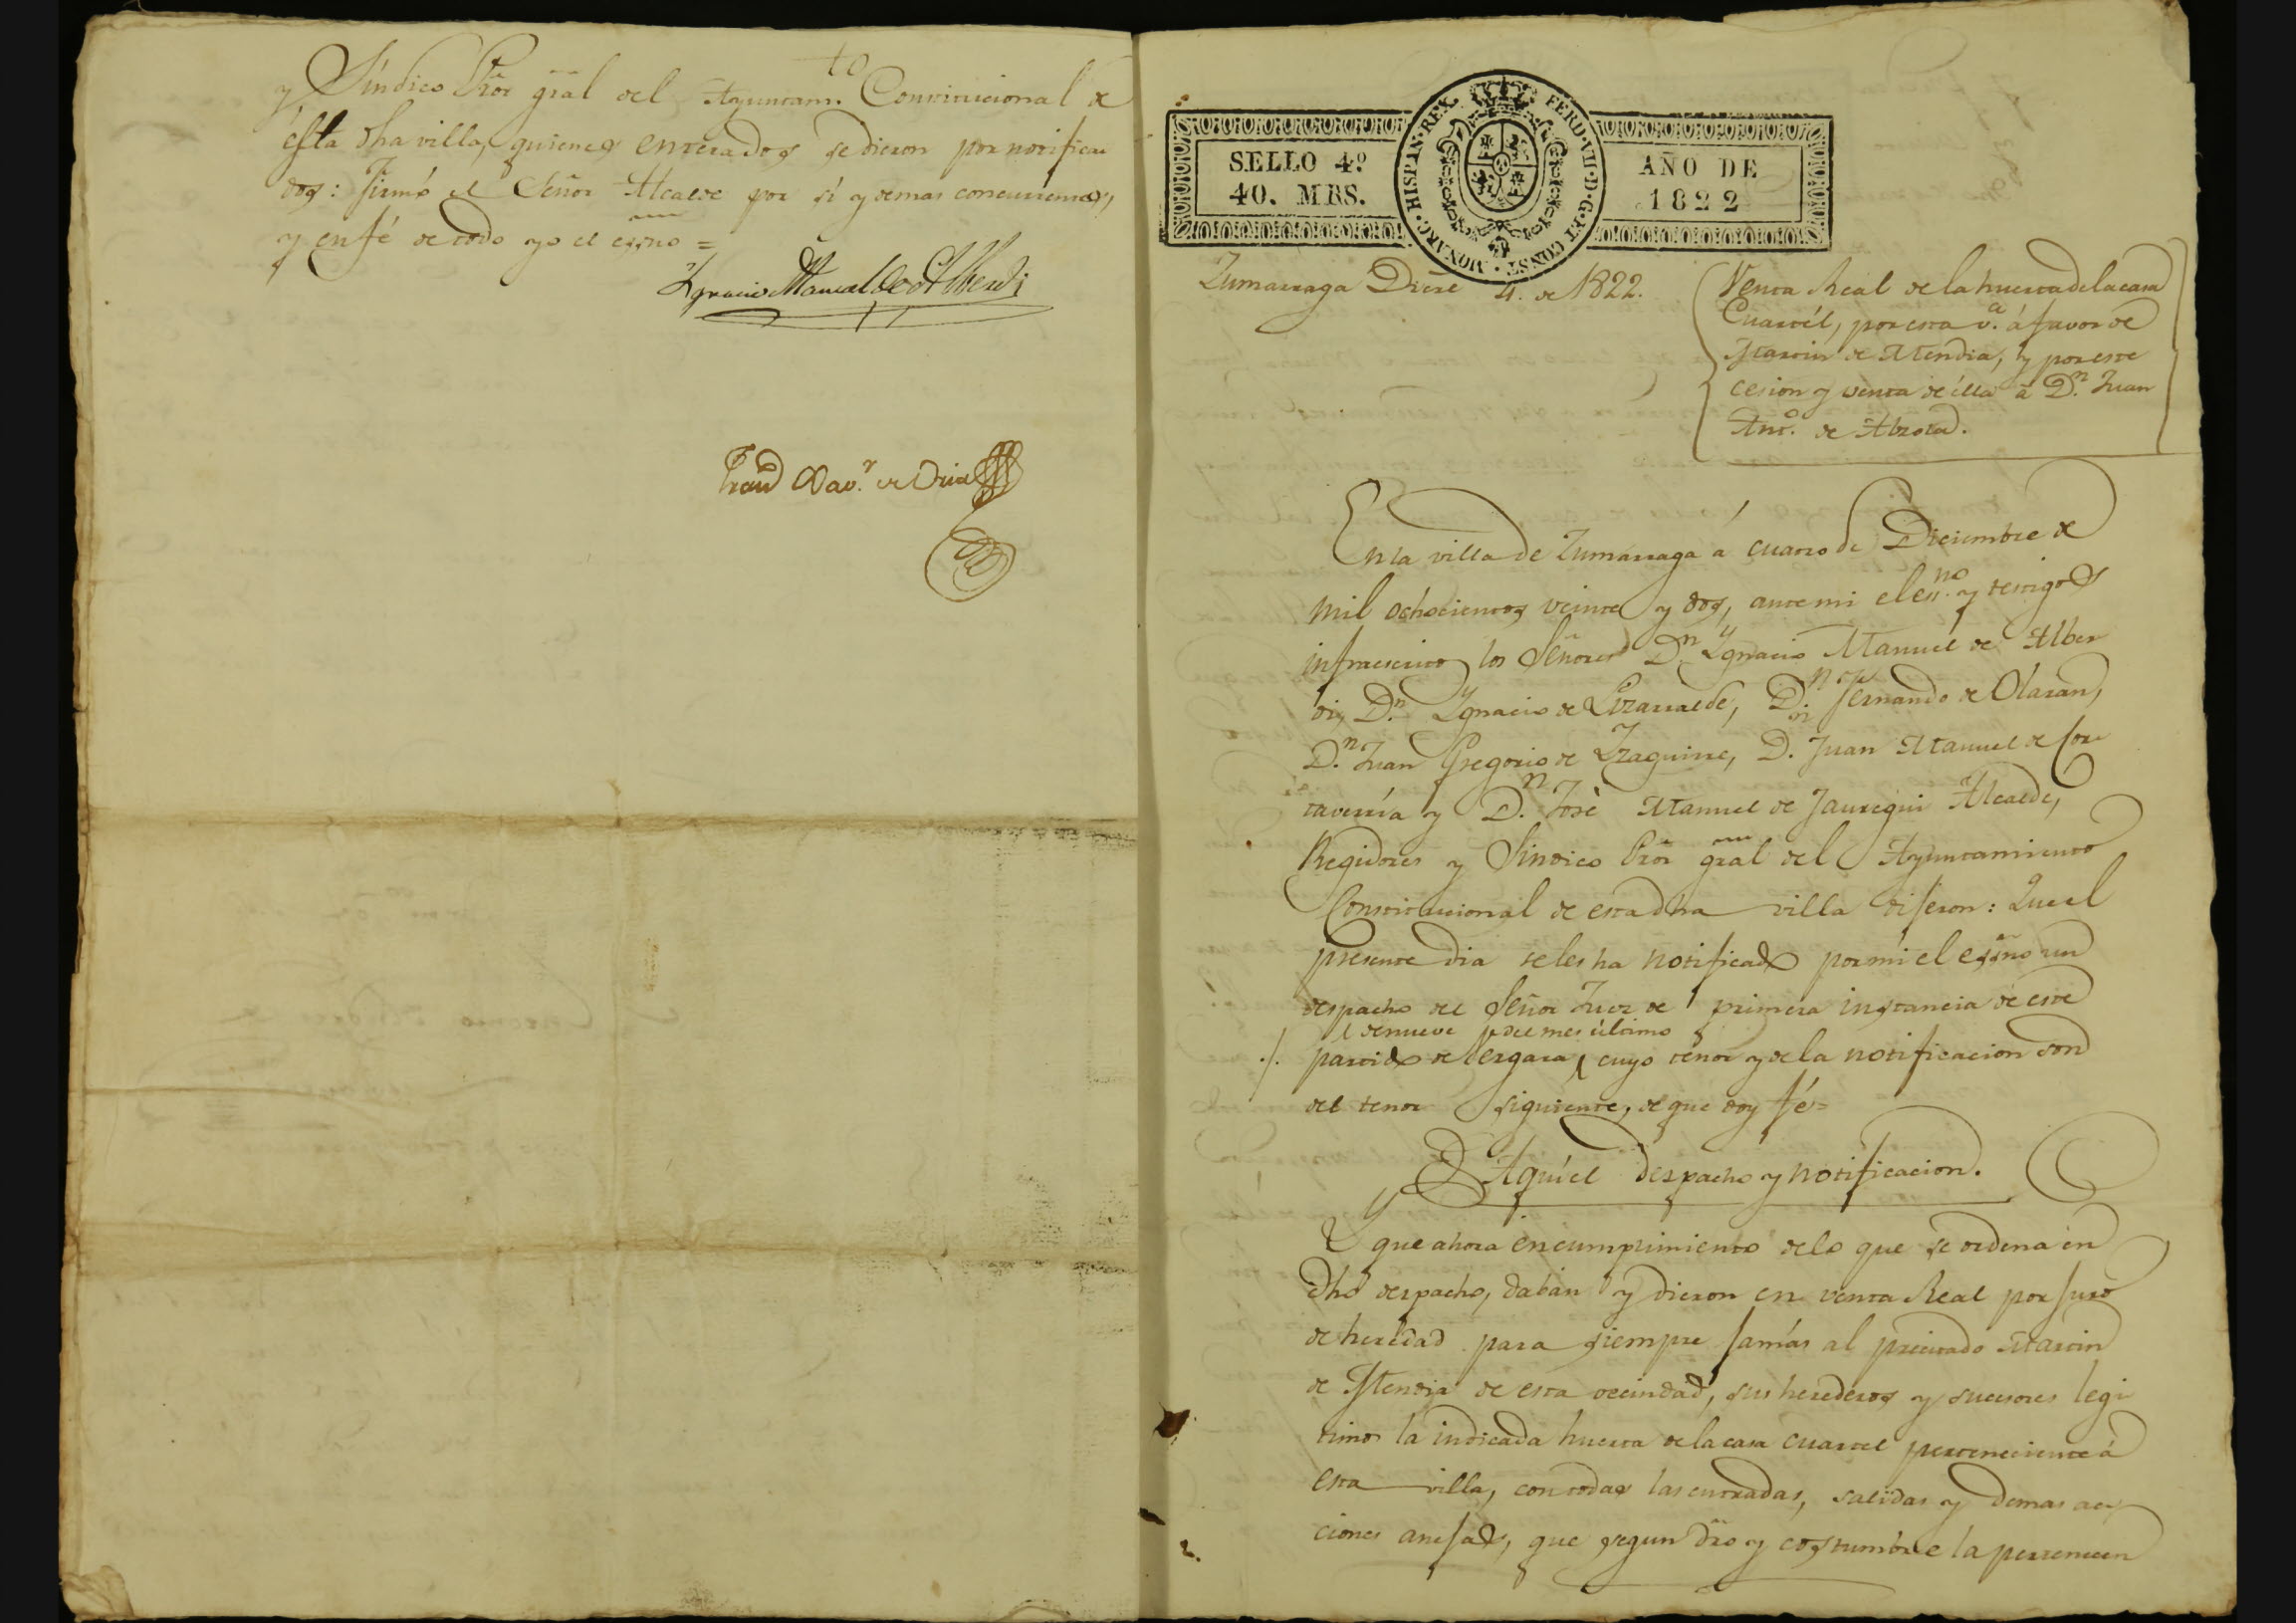 y Síndico Pror gral del Ayuntamto Constitucional de
esta dha villa, quienes enterados se dieron por notifica
dos: firmó el Señor Alcalde por sí y demas concurrentes,
y en fé de todo yo el essno =
Ygnacio Manuel de Alberdi
Franco Xavr de Oria
SELLO 4º
40. MRS.
HISPAN·REX. FERD·VII·D·G·ET CONST·MONARC·
AÑO DE
1822
Zumarraga Dicre 4. de 1822.
Venta Real de la huerta de la casa
Cuartél, por esta va. á favor de
Martin de Mendia, y por este
cesion y venta de élla á Dn. Juan
Anto. de Abrotad.
En la villa de Zumarraga á cuatro de Diciembre de
mil ochocientos veinte y dos, ante mi el essno. y testigos
infraescritos los Señores Dn Ygnacio Manuel de Alber
di, Dn. Ygnacio de Lizarralde, Dn. Fernando de Olaran,
Dn. Juan Gregorio de Yzaguirre, Dn. Juan Manuel de Cor
taverría y Dn. José Manuel de Jauregui Alcalde,
Regidores y Sindico Pror gral del Ayuntamiento
Constitucional de esta dha villa dijeron: Que el
presente dia se les ha notificado por mí el essno un
despacho del Señor Juez de primera instancia de este
de nueve del mes último
./. partido de Vergara, cuyo tenor y de la notificacion son
del tenor siguiente, de que doy fé=
Aquí el despacho y notificacion.
Y que ahora en cumplimiento de lo que se ordena en
dho despacho, daban y dieron en venta Real por juro
de heredad para siempre jamás al precitado Martin
de Mendia de esta vecindad, sus herederos y sucesores legi
timos la indicada huerta de la casa cuartel perteneciente á
esta villa, con todas las entradas, salidas y demas ac
ciones anejas, que segun dro y costumbre la pertenecen